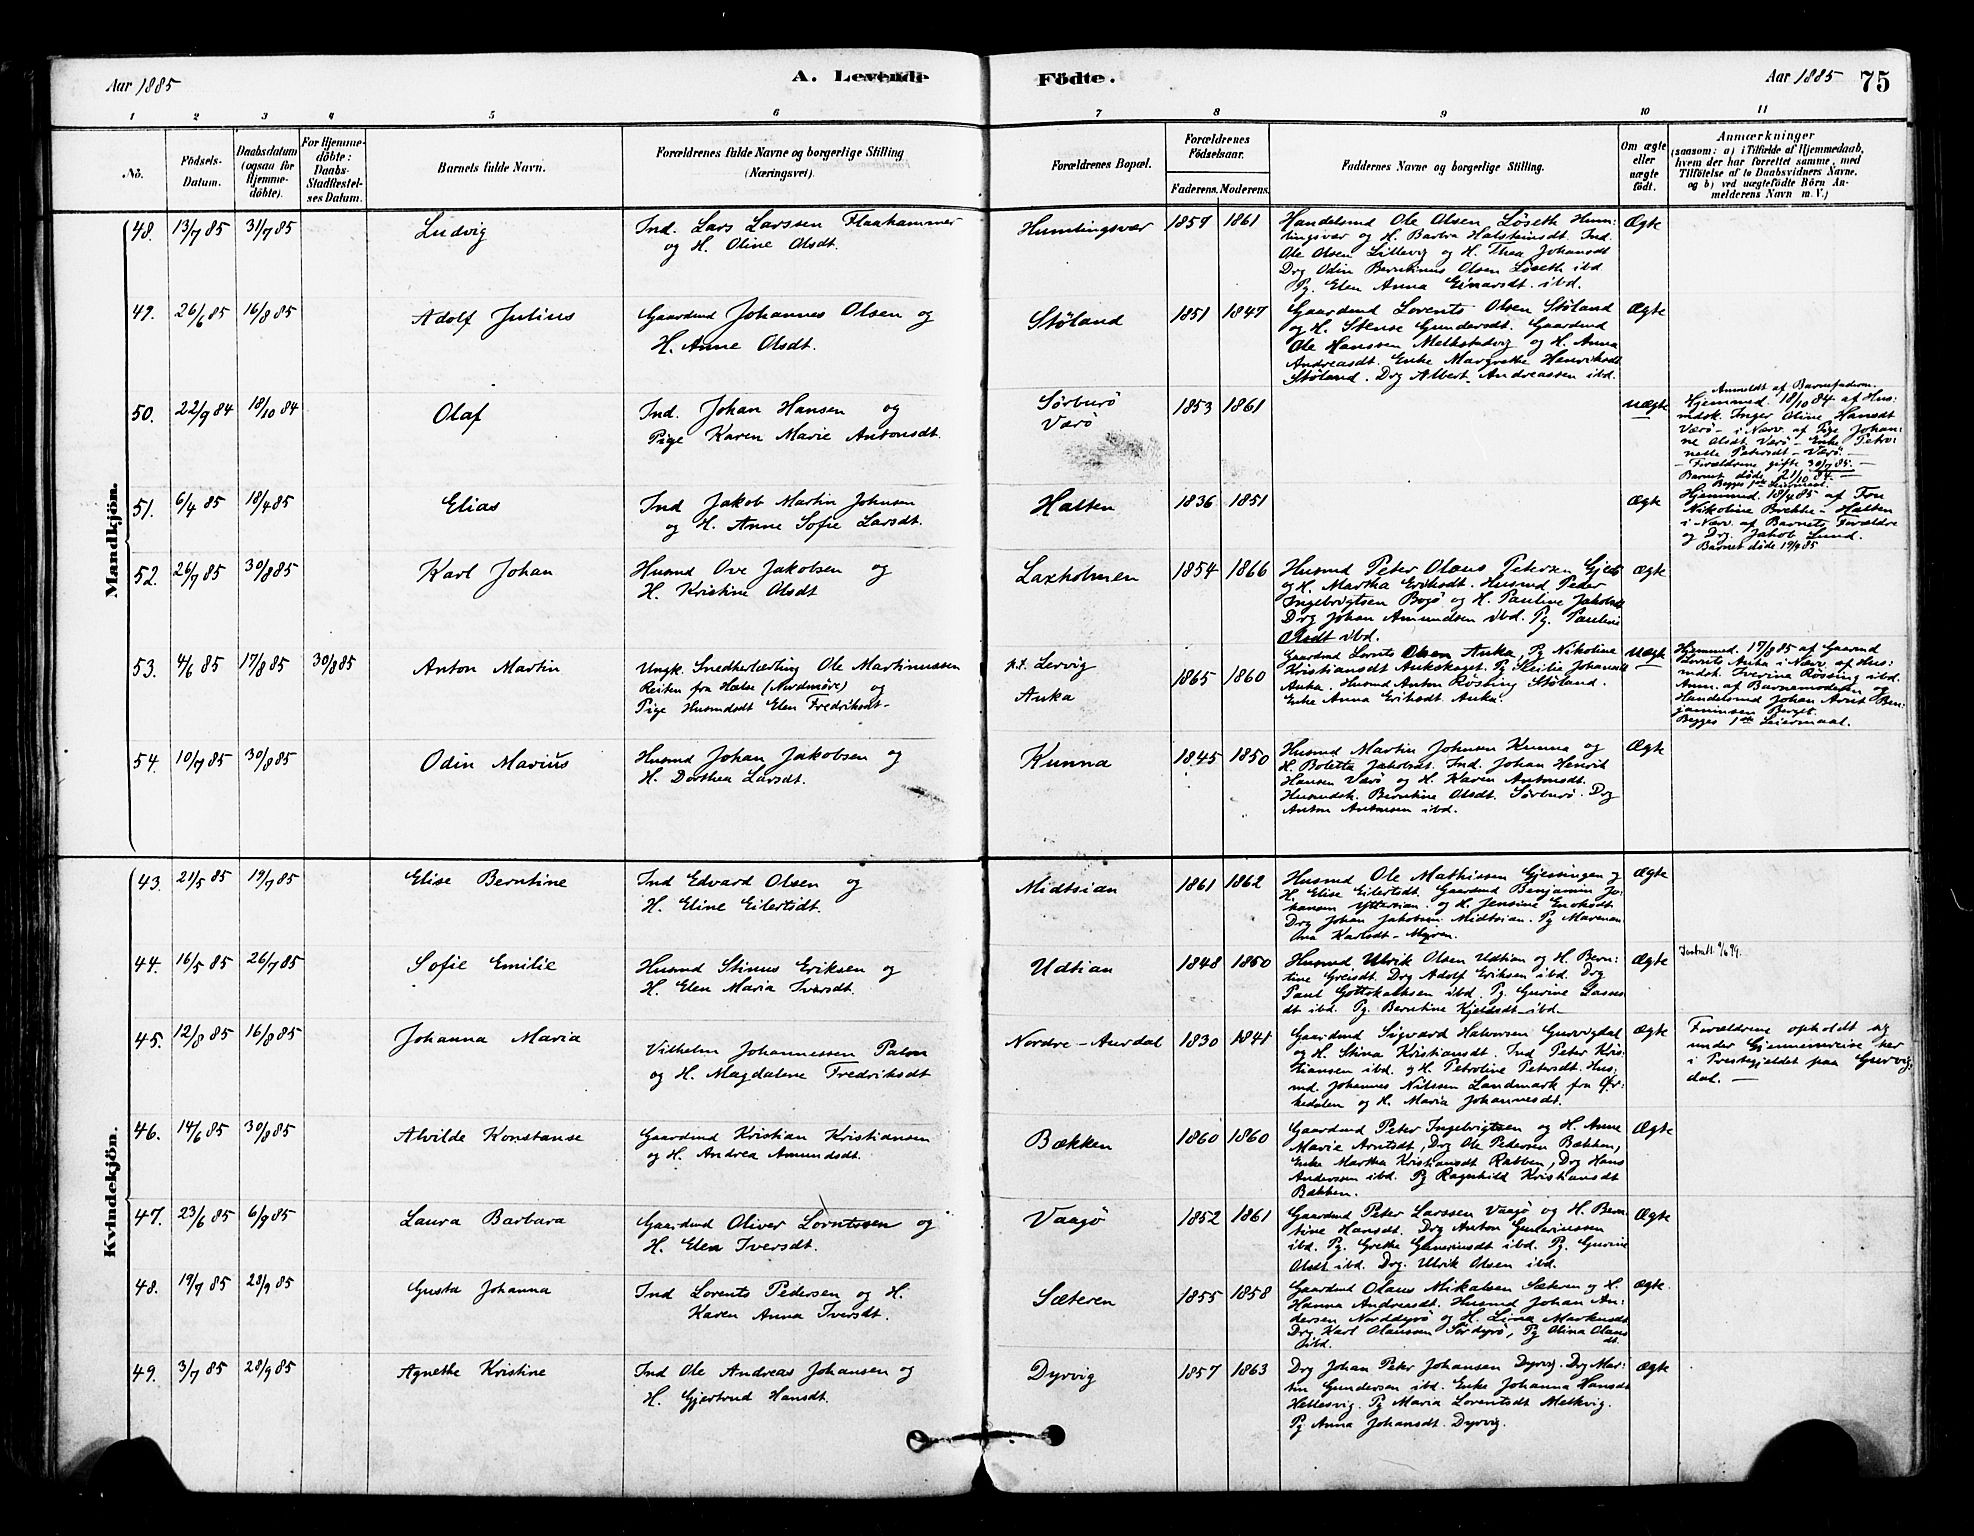 Aar 1885
A. Levende
Födte.
Aar 1885
75
1 2 3 4 5 6 7 8 9 10 11
No.
Födsels-
Datum.
Daabsdatum
(ogsaa for
Hjemme-
döbte).
For Hjemme-
döbte:
Daabs-
Stadfæstel-
ses Datum.
Barnets fulde Navn.
Forældrenes fulde Navne og borgerlige Stilling
(Næringsvei).
Forældrenes Bopæl.
Forældrenes
Födselsaar.
Faderens. Moderens.
Faddernes Navne og borgerlige Stilling.
Om ægte
eller
uægte
födt.
Anmærkninger
(saasom: a) i Tilfælde af Hjemmedaab,
hvem der har forrettet samme, med
Tilföielse af to Daabsvidners Navne,
og b) ved uægtefödte Börn An-
melderens Navn m. V.)
Mandkjön.
48. 13/7 85 31/7 85 Ludvig
Ind. Lars Larssen Flaahammer
og H. Oline Olsdt.
Humlingsvær 1857 1861
Handelsmd Ole Olsen Løseth Hum-
lingsvær og H. Barbra Halsteinsdt. Ind.
Ole Olsen Lillevig og H. Thea Johansdt
Drg Odin Berntinus Olsen Løseth ibd.
Pg. Elen Anna Einarsdt. ibd.
Ægte
49. 26/6 85 16/8 85 Adolf Julius
Gaardmd Johannes Olsen og
H. Anne Olsdt.
Støland 1851 1847
Gaardmd Lorents Olsen Støland
og H. Stense Gundersdt. Gaardmd
Ole Hanssen Melkstadvig og H. Anna
Andreasdt. Enke Margrethe Henriksdt
Støland. Drg Albert Andreassen ibd.
Ægte
50. 22/9 84 18/10 84 Olaf
Ind. Johan Hansen og
Pige Karen Marie Antonsdt.
Sörburö
Værö
1853 1861
Uægte
Anmeldt af Barnefaderen.
Hjemmed. 18/10 84 af Hus-
mdsk. Inger Oline Hansdt
Værö - i Nærv. af Pige Johan-
ne Olsdt Værö - Enke Petro-
nelle Petersdt - Værö -
- Forældrene gifte 30/7 85. -
Barnet döde 21/10 84 -
Begges 1ste Leiermaal.
51. 6/4 85 18/4 85 Elias
Ind Jakob Martin Johnsen
og H. Anne Sofie Larsdt.
Halten 1836 1851
Ægte
Hjemmed. 18/4 85 af Fru
Nikoline Brekke - Halten
i Nærv. af Barnets Forældre
og Drg. Jakob Lund.
Barnet döde 19/4 85
52. 26/7 85 30/8 85 Karl Johan
Husmd Ove Jakobsen og
H. Kristine Olsdt
Laxholmen 1854 1866
Husmd Peter Olaus Petersen
og H. Martha Eriksdt. Husmd Peder
Ingebrigtsen Bogö og H. Pauline Jakobsdt
Drg Johan Amundsen ibd. Pg. Pauline
Olsdt ibd.
Ægte
53. 4/6 85 17/8 85 30/8 85 Anton Martin
Ungk. Snedkerlærling Ole Martinussen
Reiten fra Halse (Nordmöre) og
Pige Husmdsdt Elen Fredriksdt-
p.t. Lervig
Auka
1865 1860
Gaardmd Lornts Olsen Auka, Pg Nikoline
Kristiansdt Aukskaget. Pg Johansdt
Auka. Husmd Anton Røssing Støland.
Enke Anna Eriksdt. Auka.
Uægte
Hjemmed. 17/8 85 af Gaarmd
Lornts Auka i Nærv. af Hus-
mdsk. Iverina Røssing ibd.
Anm. af Barnemoderen og
Handelsmd Johan Arnt Ben-
jaminsen Berget.
Begges 1ste Leiermaal.
54. 10/7 85 30/8 85 Odin Marius
Husmd Johan Jakobsen og
H. Dorthea Larsdt.
Kunna 1845 1850
Husmd Martin Johnsen Kunna og
H. Boletta Jakobsdt. Ind. Johan Henrik
Hansen Værö og H. Karen Antonsdt.
Husmdsk. Berntine Olsdt. Sørburö. Drg
Anton Antonsen ibd.
Ægte
Kvindekjön.
43. 21/5 85 19/7 85 Elise Berntine
Ind Edvard Olsen og
H. Eline Eilertsdt.
Midtsian 1861 1862
Husmd Ole Mathissen Gjessingen og
H. Elise Eilertsdt. Gaardmd Benjamin Jo-
hansen Yttersian. og H. Jensine Enoksdt.
Drg Johan Jakobsen Midtsian. Pg Maren
Ana Karlsdt - Myren.
Ægte
44. 16/5 85 26/7 85 Sofie Emilie
Husmd Stinus Eriksen og
H. Elen Maria Iversdt.
Udtian 1848 1850
Husmd Ulrik Olsen Udtian og H. Bern-
tine Greisdt. Drg Adolf Eriksen ibd. Drg
Paul Gottskalksen ibd. Pg. Gurine Lasses-
dt ibd. Pg. Berntine Kjeldsdt ibd.
Ægte
9/6 99.
45. 12/8 85 16/8 85 Johanna Maria
Vilhelm Johannessen Palon
og H. Magdalene Fredriksdt
Nordre-Aurdal 1830 1841
Gaardmd Sigvard Halvorsen Gurvigdal
og H. Stina Kristiansdt. Ind Peter Kris-
tiansen ibd. og H. Petroline Petersdt. Hus-
md. Johannes Nilssen Landmark fra Ør-
kedalen og H. Maria Johannesdt.
Ægte
Forældrene opholdt sig
under Gjennemreise her
i Prestegjeldet paa Gurvig-
dal. -
46. 14/6 85 30/8 85 Alvilde Konstanse
Gaardmd Kristian Kristiansen
og H. Andrea Amundsdt.
Bækken 1860 1860
Gaardmd Peter Ingebrigtsen og H. Anne
Maria Arntsdt, Drg Ole Pedersen Bækken,
Enke Martha Kristiansdt Rabben, Drg Hans
Anderssen ibd. Pg Ragnhild Kristiansdt
Bækken.
Ægte
47. 23/6 85 6/9 85 Laura Barbara
Gaardmd Oliver Lorntssen og
H. Elen Iversdt.
Vaagö 1852 1861
Gaardmd Peter Larssen Vaagö og H. Bern-
tine Hansdt. Drg Anton Gunerinssen
ibd. Pg. Grethe Gunerinsdt ibd. Pg. Gurine
Olsdt ibd. Drg. Ulrik Olsen ibd.
Ægte
48. 19/7 85 28/9 85 Gusta Johanna
Ind Lorents Pedersen og H.
Karen Anna Iversdt.
Sæteren 1855 1858
Gaardmd Olaus Mikalsen Sæteren og H.
Hanna Andreasdt. Husmd Johan An-
dersen Norddyrö og H. Lina Markusdt
Drg Karl Olaussen Sördyrö, Pg Olina Olaus
dt. ibd.
Ægte.
49. 3/7 85 28/9 85 Agnethe Kristine
Ind Ole Andreas Johansen og
H. Gjertrud Hansdt.
Dyrvig 1857 1863
Drg Johan Peter Johansen Dyrvig. Drg Mar-
tin Gundersen ibd. Enke Johanna Hansdt
Hellesvig. Pg Maria Lorentsdt Melkvig.
Pg Anna Johansdt. Dyrvig.
Ægte